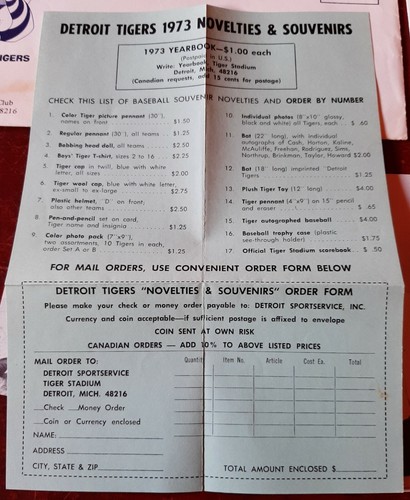 IGERS
Club
8216
DETROIT TIGERS 1973 NOVELTIES & SOUVENIRS
1973 YEARBOOK—$1.00 each
(Postpaid in U.S.)
Write: Yearbook, Tiger Stadium
Detroit, Mich. 48216
(Canadian requests, add 15 cents for postage)
CHECK THIS LIST OF BASEBALL SOUVENIR NOVELTIES AND ORDER BY NUMBER
1. Color Tiger picture pennant (30"),
names on front $1.50
2. Regular pennant (30"), all teams $1.25
3. Bobbing head doll, all teams $2.50
4. Boys' Tiger T-shirt, sizes 2 to 16 $2.25
5. Tiger cap in twill, blue with white
letter, all sizes $2.00
6. Tiger wool cap, blue with white letter,
ex-small to ex-large $2.75
7. Plastic helmet, "D" on front;
also other teams $2.50
8. Pen-and-pencil set on card,
Tiger name and insignia $1.25
9. Color photo pack (7"x9"),
two assortments, 10 Tigers in each,
order Set A or B $1.25
10. Individual photos (8"x10" glossy,
black and white) all Tigers, each $ .60
11. Bat (22" long), with individual
autographs of Cash, Horton, Kaline,
McAuliffe, Freehan, Rodriguez, Sims,
Northrup, Brinkman, Taylor, Howard $2.00
12. Bat (18" long) imprinted "Detroit
Tigers $1.25
13. Plush Tiger Toy (12" long) $4.00
14. Tiger pennant (4"x9") on 15" pencil
and eraser $ .65
15. Tiger autographed baseball $4.00
16. Baseball trophy case (plastic
see-through holder) $1.75
17. Official Tiger Stadium scorebook $ .50
FOR MAIL ORDERS, USE CONVENIENT ORDER FORM BELOW
DETROIT TIGERS "NOVELTIES & SOUVENIRS" ORDER FORM
Please make your check or money order payable to: DETROIT SPORTSERVICE, INC.
Currency and coin acceptable—if sufficient postage is affixed to envelope
COIN SENT AT OWN RISK
CANADIAN ORDERS — ADD 10% TO ABOVE LISTED PRICES
MAIL ORDER TO:
DETROIT SPORTSERVICE
TIGER STADIUM
DETROIT, MICH. 48216
Check Money Order
Coin or Currency enclosed
NAME:
ADDRESS
CITY, STATE & ZIP
Quantity Item No. Article Cost Ea. Total
TOTAL AMOUNT ENCLOSED $